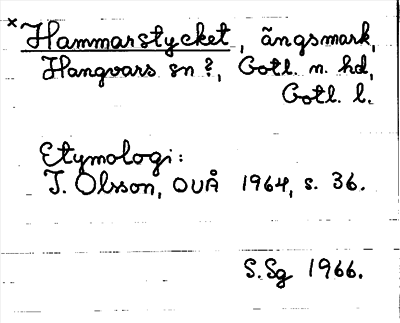 ×Hammarstycket, ängsmark,
Hangvars sn?, Gotl. n. hd,
Gotl. l.
Etymologi:
I. Olsson, OUÅ 1964, s. 36.
S.Sg 1966.